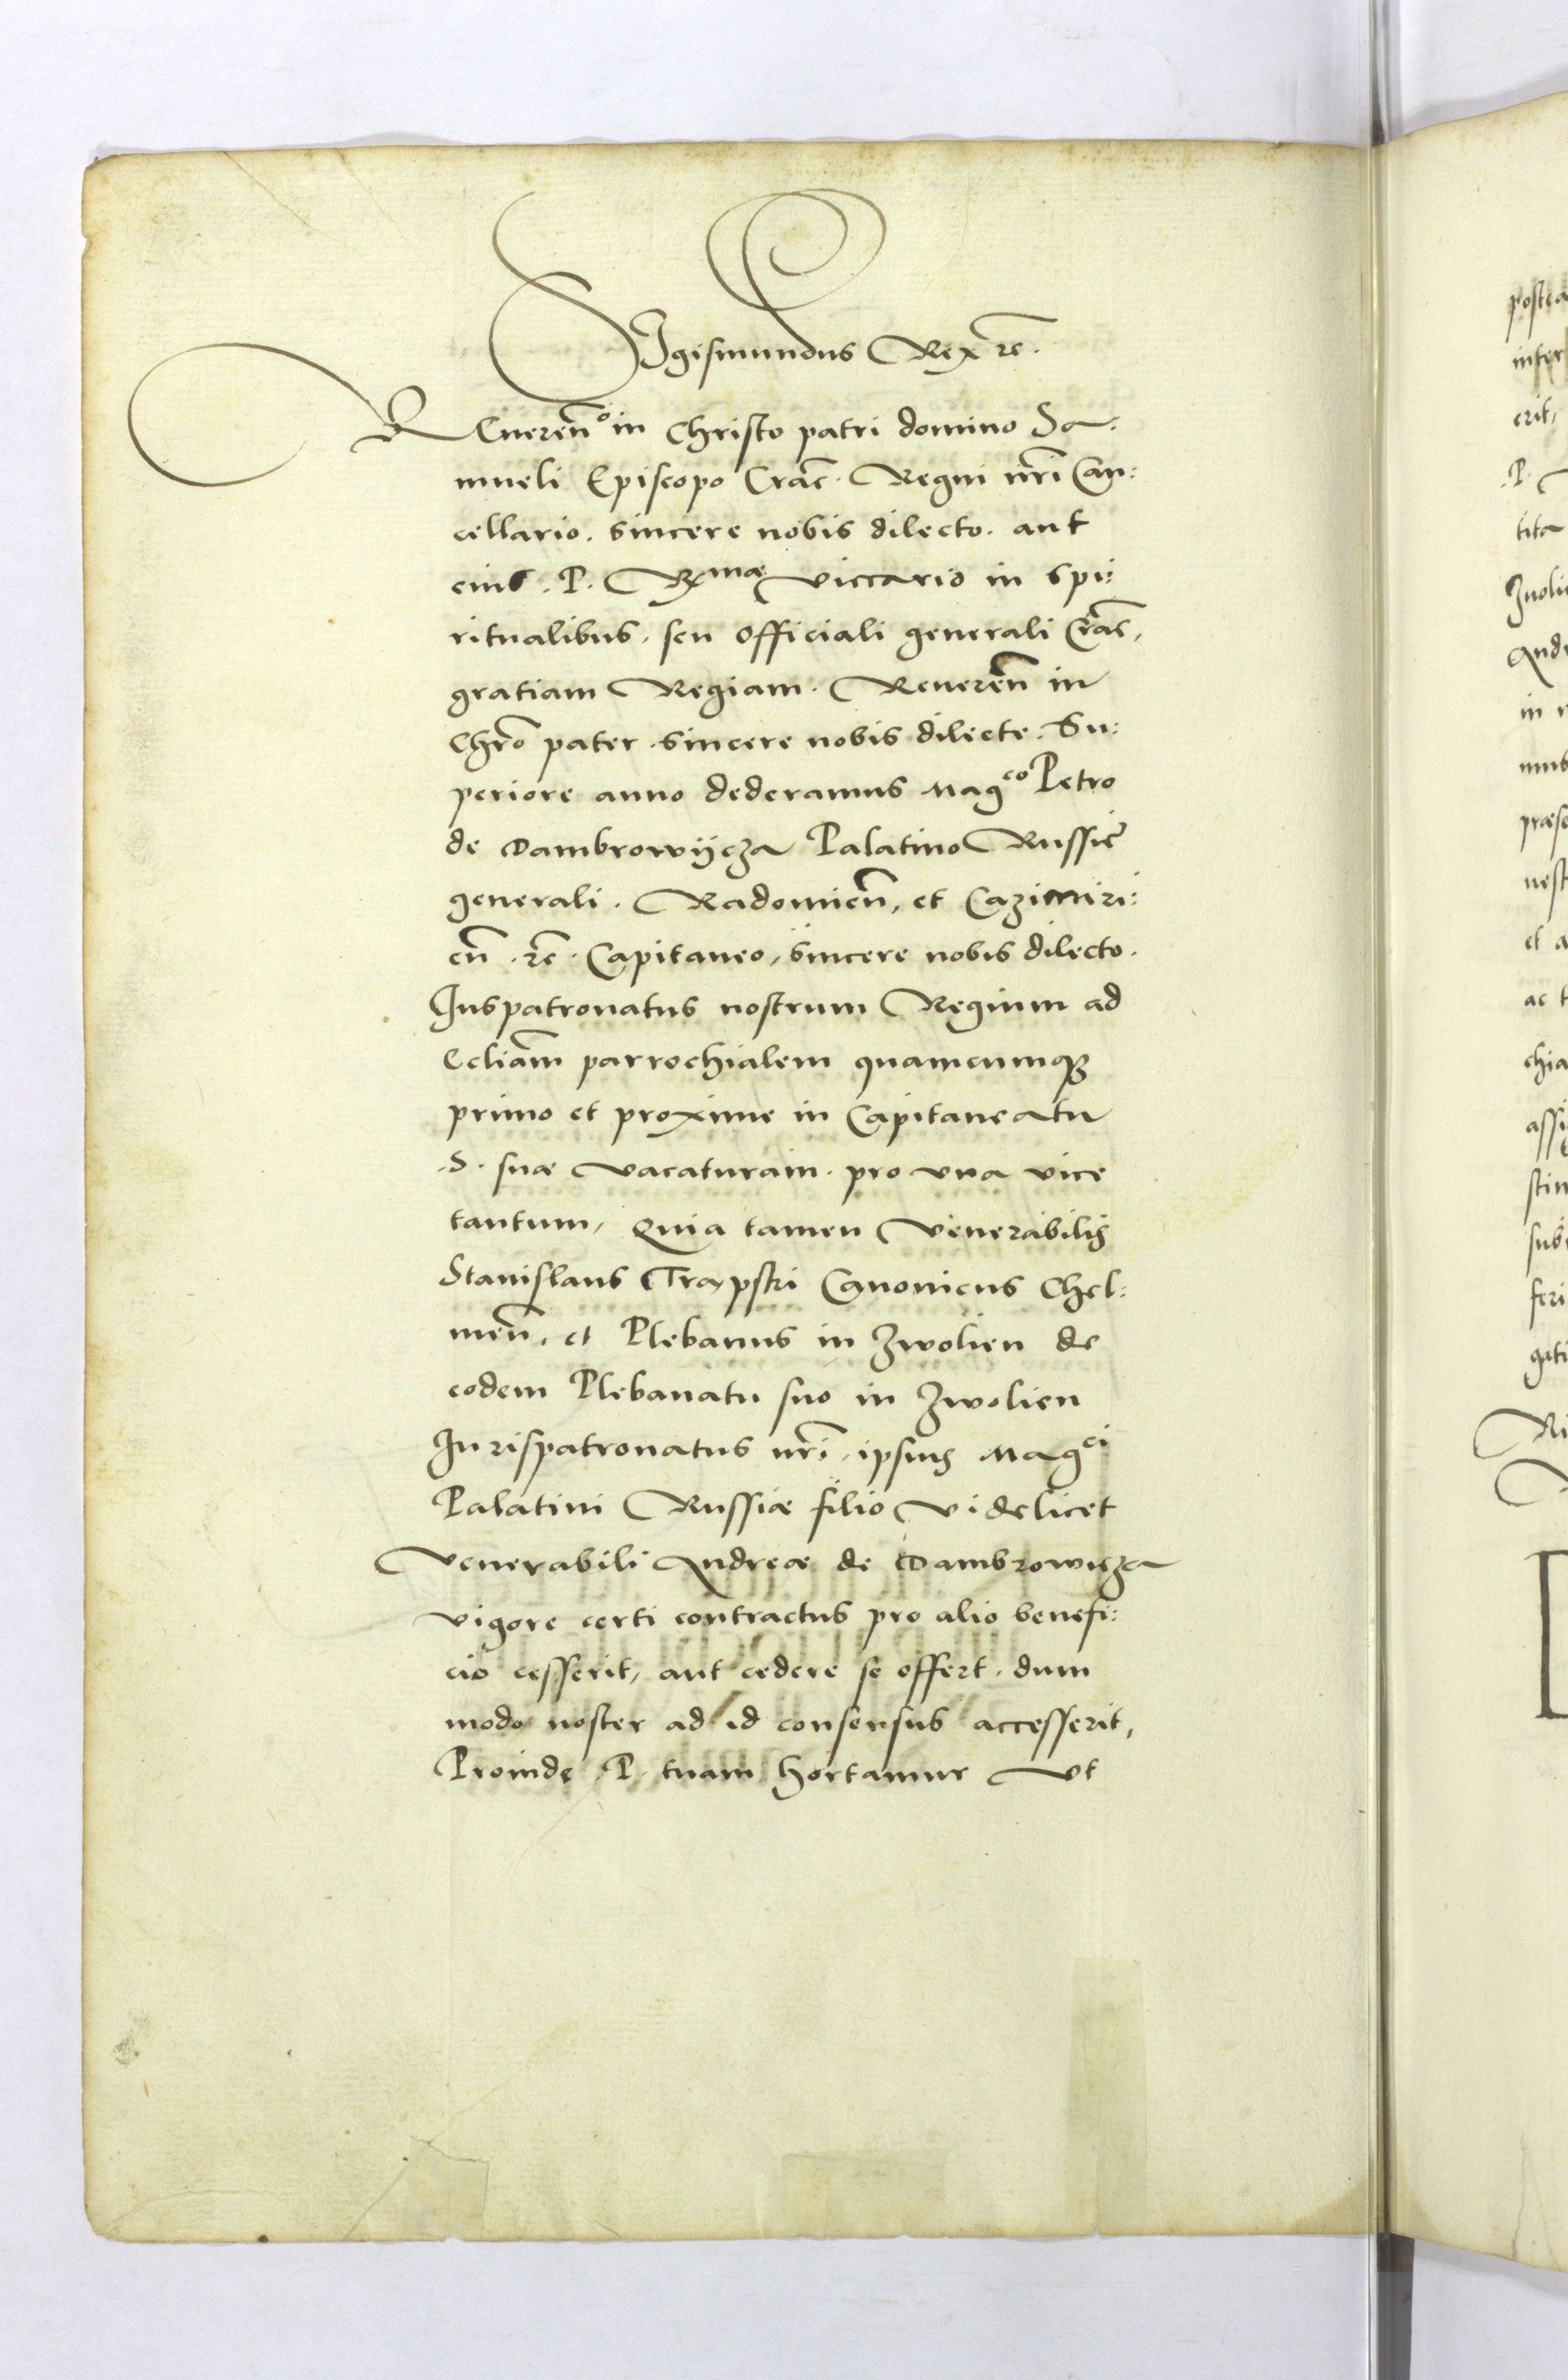 SIgismundus Rex rc̄.
REueren̄º in Christo patri domino Sa:
mueli Episcopo Crac̄. Regni nr̄i Can:
cellario. sincere nobis dilecto. aut
eius .P. Rmae viccario in spi:
ritualibus. seu officiali generali Crac̄,
gratiam Regiam. Reueren̄ in
Chr̄o pater sincere nobis dilecte. Su:
periore anno dederamus Magco Petro
de Dambrowijcza Palatino Russię
generali. Radomien̄, et Cazimiri:
en̄ . rc̄ . Capitaneo, sincere nobis dilecto.
Iuspatronatus nostrum Regium ad
Eccliam̄ parrochialem quamcumq3
primo et proxime in Capitaneatu
.S. suae vacaturam. pro vna vice
tantum, Quia tamen Venerabilis
Stanislaus Trapski Canonicus Chel:
men̄. et Plebanus in Zwolien de
eodem Plebanatu suo in Zwolien
Iurispatronatus nr̄i, ipsius Magci
Palatini Russiae filio videlicet
Venerabili Andreae de Dambrowicza
vigore certi contractus pro alio benefi:
cio cesserit, aut cedere se offert. dum
modo noster ad id consensus accesserit,
Proinde .P. tuam hortamur vt
postea
infer
erit,
.P.
tita
Zuoli
Andr
in r
mus
praese
nest
et a
ac t
chia
assi
stin
sub
feri
gati